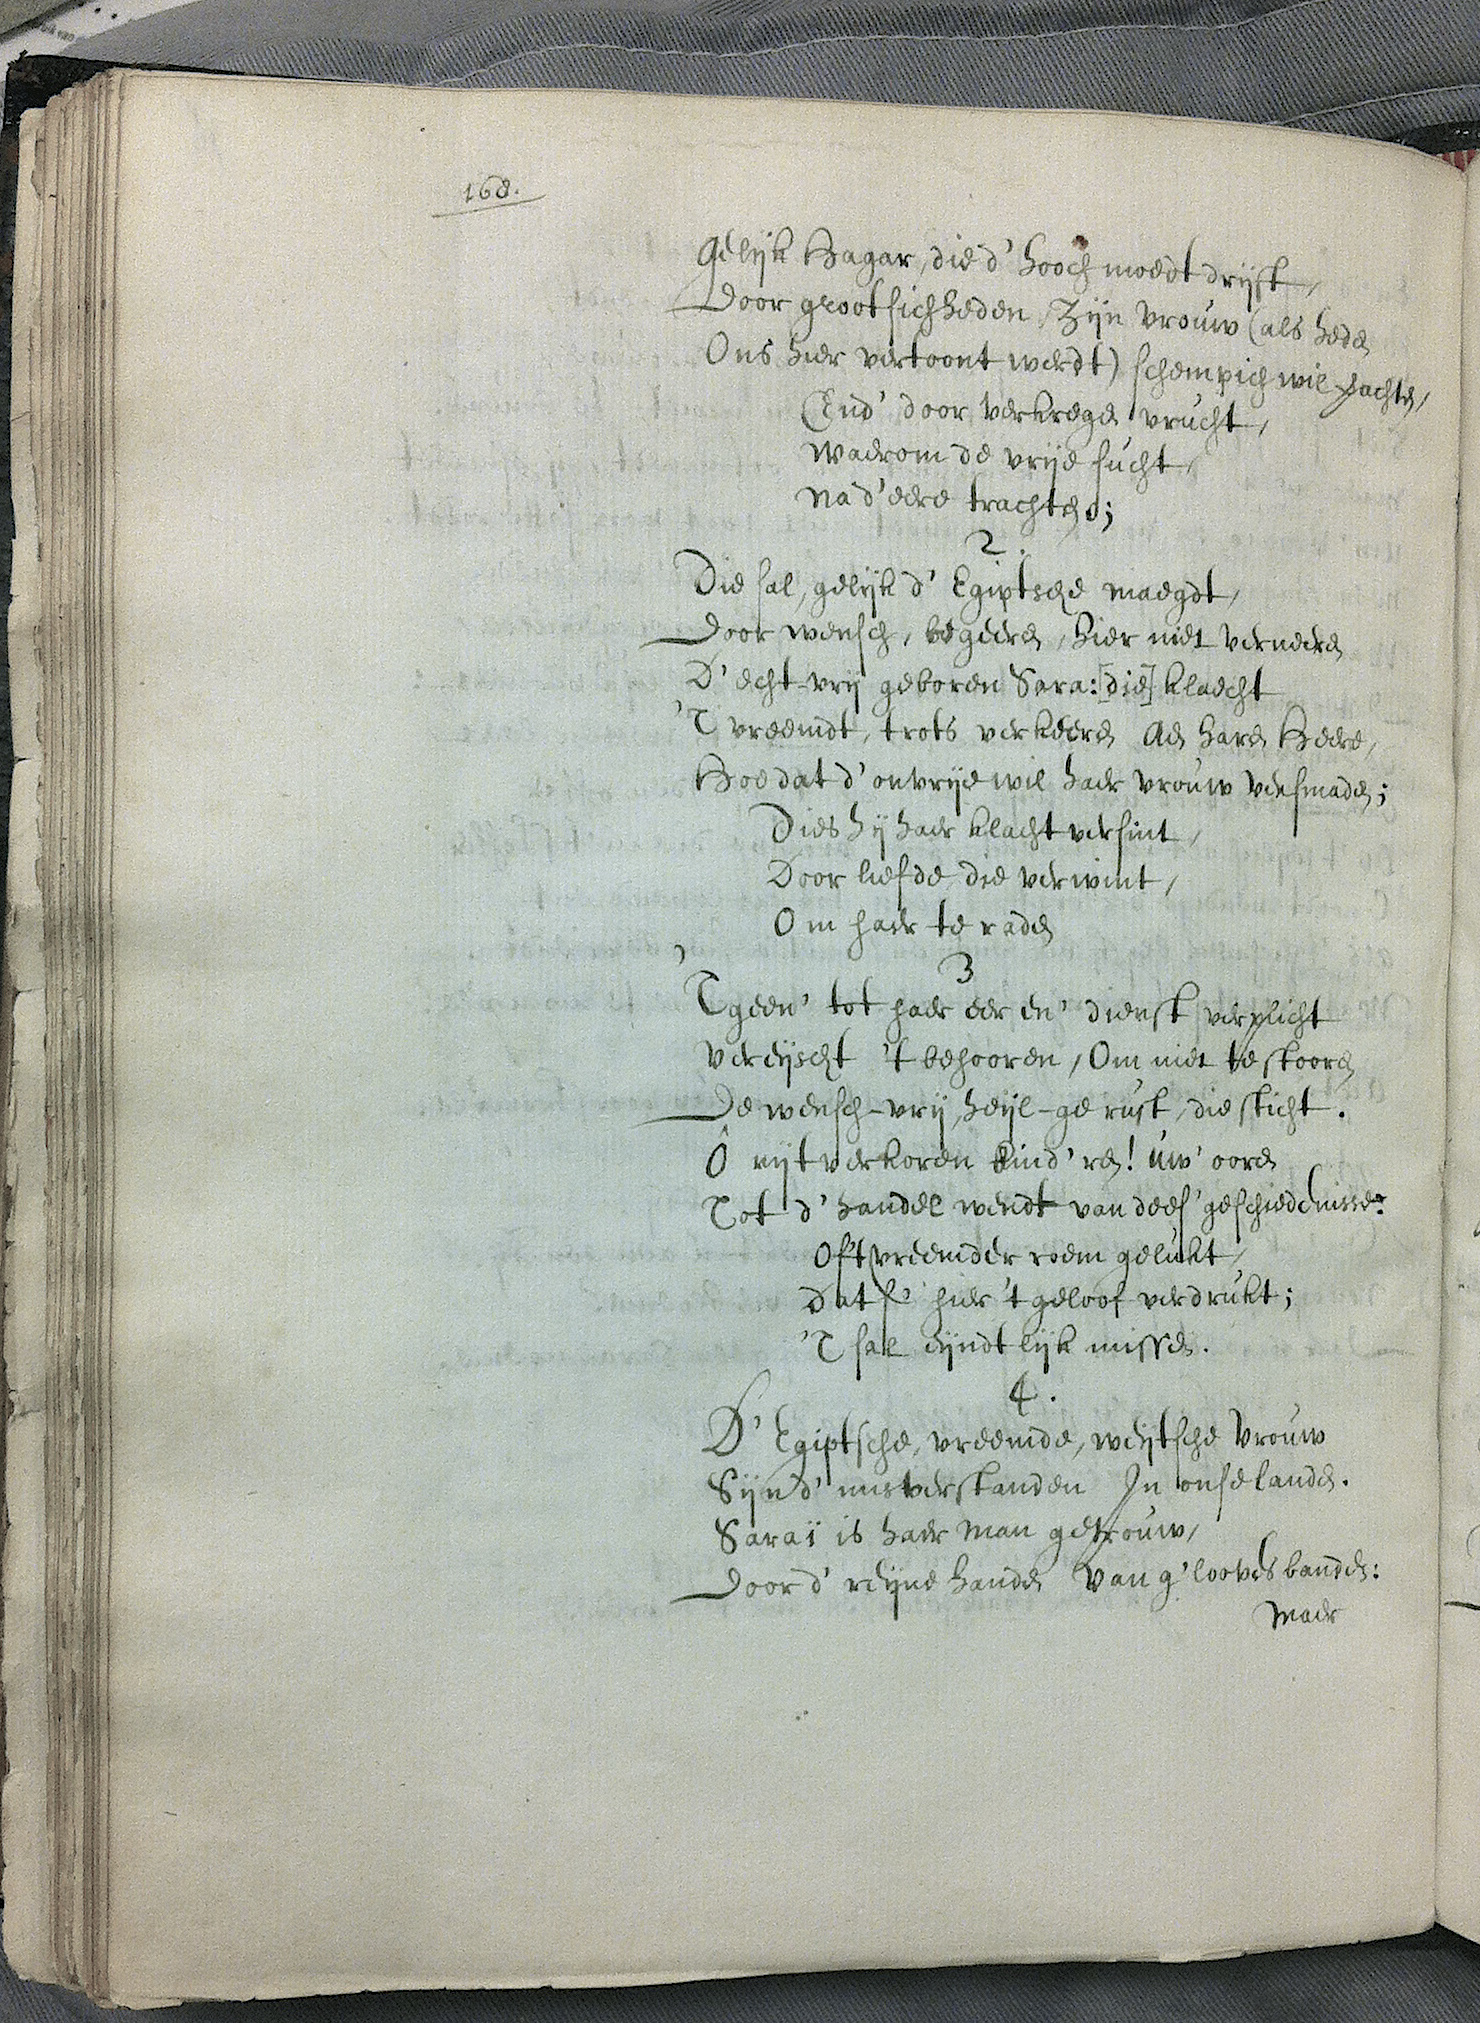 168.
Gelijk Hagar, die d' hoochmoedt drijft,
Door grootsichheden, Zijn vrouw (als heden
Ons hier vertoont werdt) schempich wil achten,
End' door verkregen vrucht,
Waerom de vrije sucht,
Na d' eere trachten;
2.
Die sal, gelijk d' Egiptsche maegdt,
Door wensch, begeeren, hier niet verneeren
D' echt-vrij geboren Sara: [die] klaecht
'T vreemdt, trots verkeeren Aen haren Heere,
Hoe dat d' onvrije wil haer vrouw versmaden;
Dies hij haer klacht versint,
Door liefde, die verwint,
Om haer te raden
3
'T geen' tot haer eer en' dienst verplicht
Vereijscht 't behooren, Om niet te stooren
De wensch-vrij, heijl-gerust, die sticht.
Ô uijtverkoren kind'ren! uw' ooren
Tot d' handel wendt van dees' geschiedenissen:
Of 't vreemder roem gelukt,
Dat s' hier 't geloof verdrukt;
'T sal eijndtlijk missen.
4.
D' Egiptsche, vreemde, weijtsche Vrouw
Sijn d' misverstanden In onse landen.
Saraï is haer Man getrouw,
Door d' reijne handen Van g'loovesbanden:
Maer